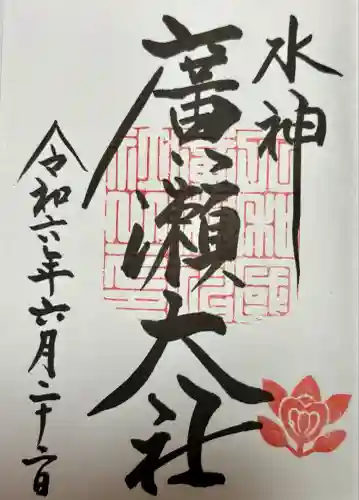 水神
廣瀬大社
令和六年六月二十二日